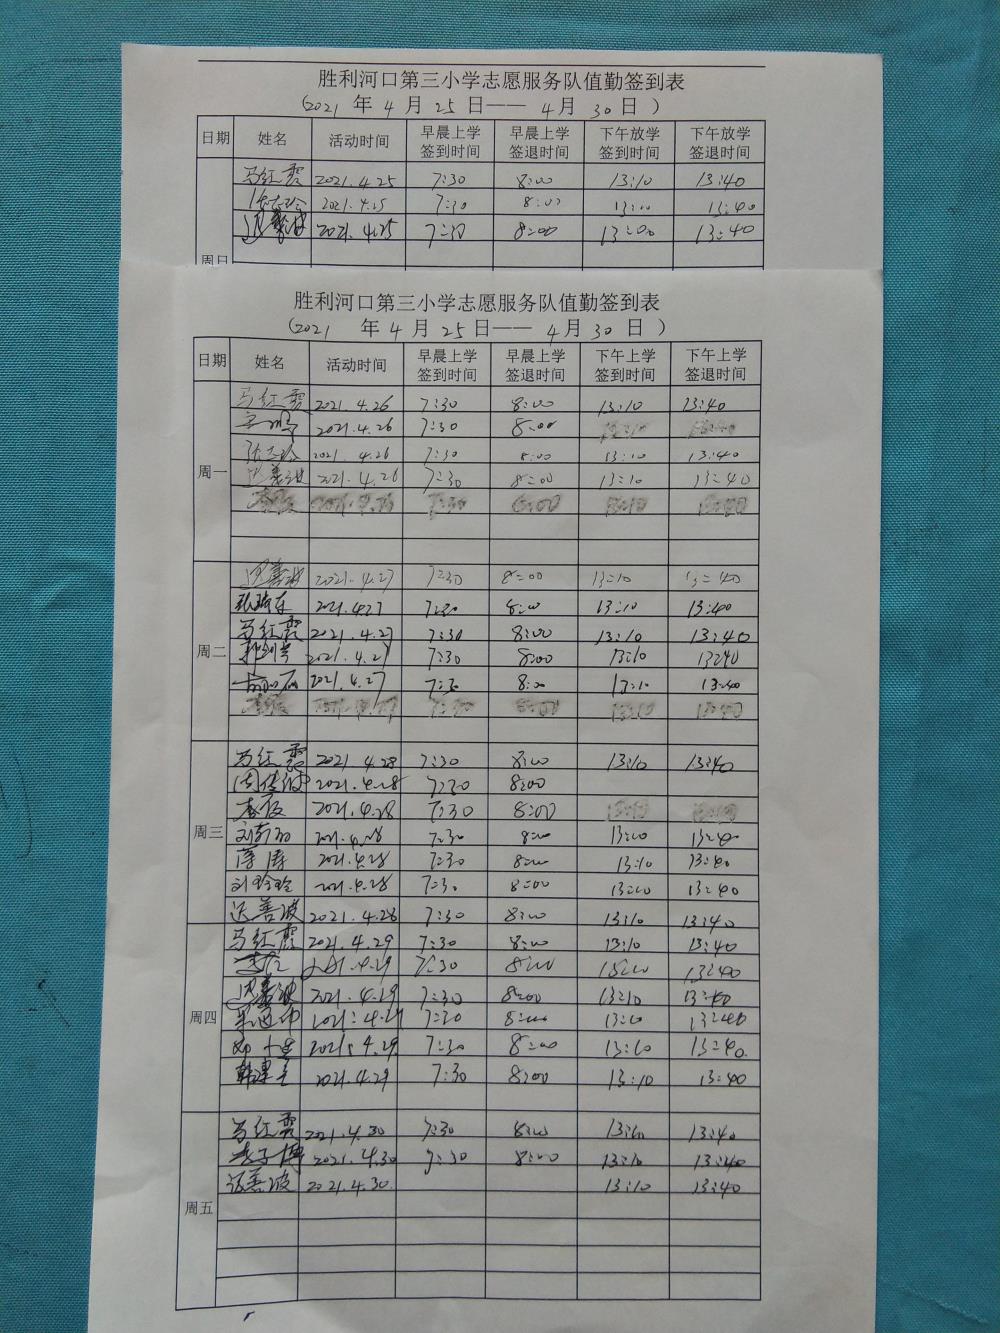 胜利河口第三小学志愿服务队值勤签到表
(2021 年 4 月 25 日—— 4 月 30 日 )
日期 姓名 活动时间 早晨上学签到时间 早晨上学签退时间 下午放学签到时间 下午放学签退时间
马红霞 2021.4.25 7:30 8:00 13:10 13:40
2021.4.25 7:30 8:00 13:40
2021.4.25 7:30 8:00 13:00 13:40
周日
胜利河口第三小学志愿服务队值勤签到表
(2021 年 4 月 25 日—— 4 月 30 日 )
日期 姓名 活动时间 早晨上学签到时间 早晨上学签退时间 下午上学签到时间 下午上学签退时间
马红霞 2021.4.26 7:30 8:00 13:10 13:40
2021.4.26 7:30 8:00
2021.4.26 7:30 8:00 13:10 13:40
周一 迟善波 2021.4.26 7:30 8:00 13:10 13:40
迟善波 2021.4.27 7:30 8:00 13:10 13:40
2021.4.27 7:30 8:00 13:10 13:40
马红霞 2021.4.27 7:30 8:00 13:10 13:40
周二 2021.4.27 7:30 8:00 13:10 13:40
2021.4.27 7:30 8:00 13:10 13:40
马红霞 2021.4.28 7:30 8:00 13:10 13:40
2021.4.28 7:30 8:00
2021.4.28 7:30 8:00
周三 2021.4.28 7:30 8:00 13:40
2021.4.28 7:30 8:00 13:10 13:40
刘玲玲 2021.4.28 7:30 8:00 13:40
迟善波 2021.4.28 7:30 8:00 13:10 13:40
马红霞 2021.4.29 7:30 8:00 13:10 13:40
7:30 8:00 13:40
迟善波 2021.4.29 7:30 8:00 13:10 13:40
周四 2021.4.29 7:30 8:00 13:40
2021.4.29 7:30 8:00 13:10 13:40
2021.4.29 7:30 8:00 13:10 13:40
马红霞 2021.4.30 7:30 8:00 13:10 13:40
李子博 2021.4.30 7:30 8:00 13:10 13:40
迟善波 2021.4.30 13:10 13:40
周五